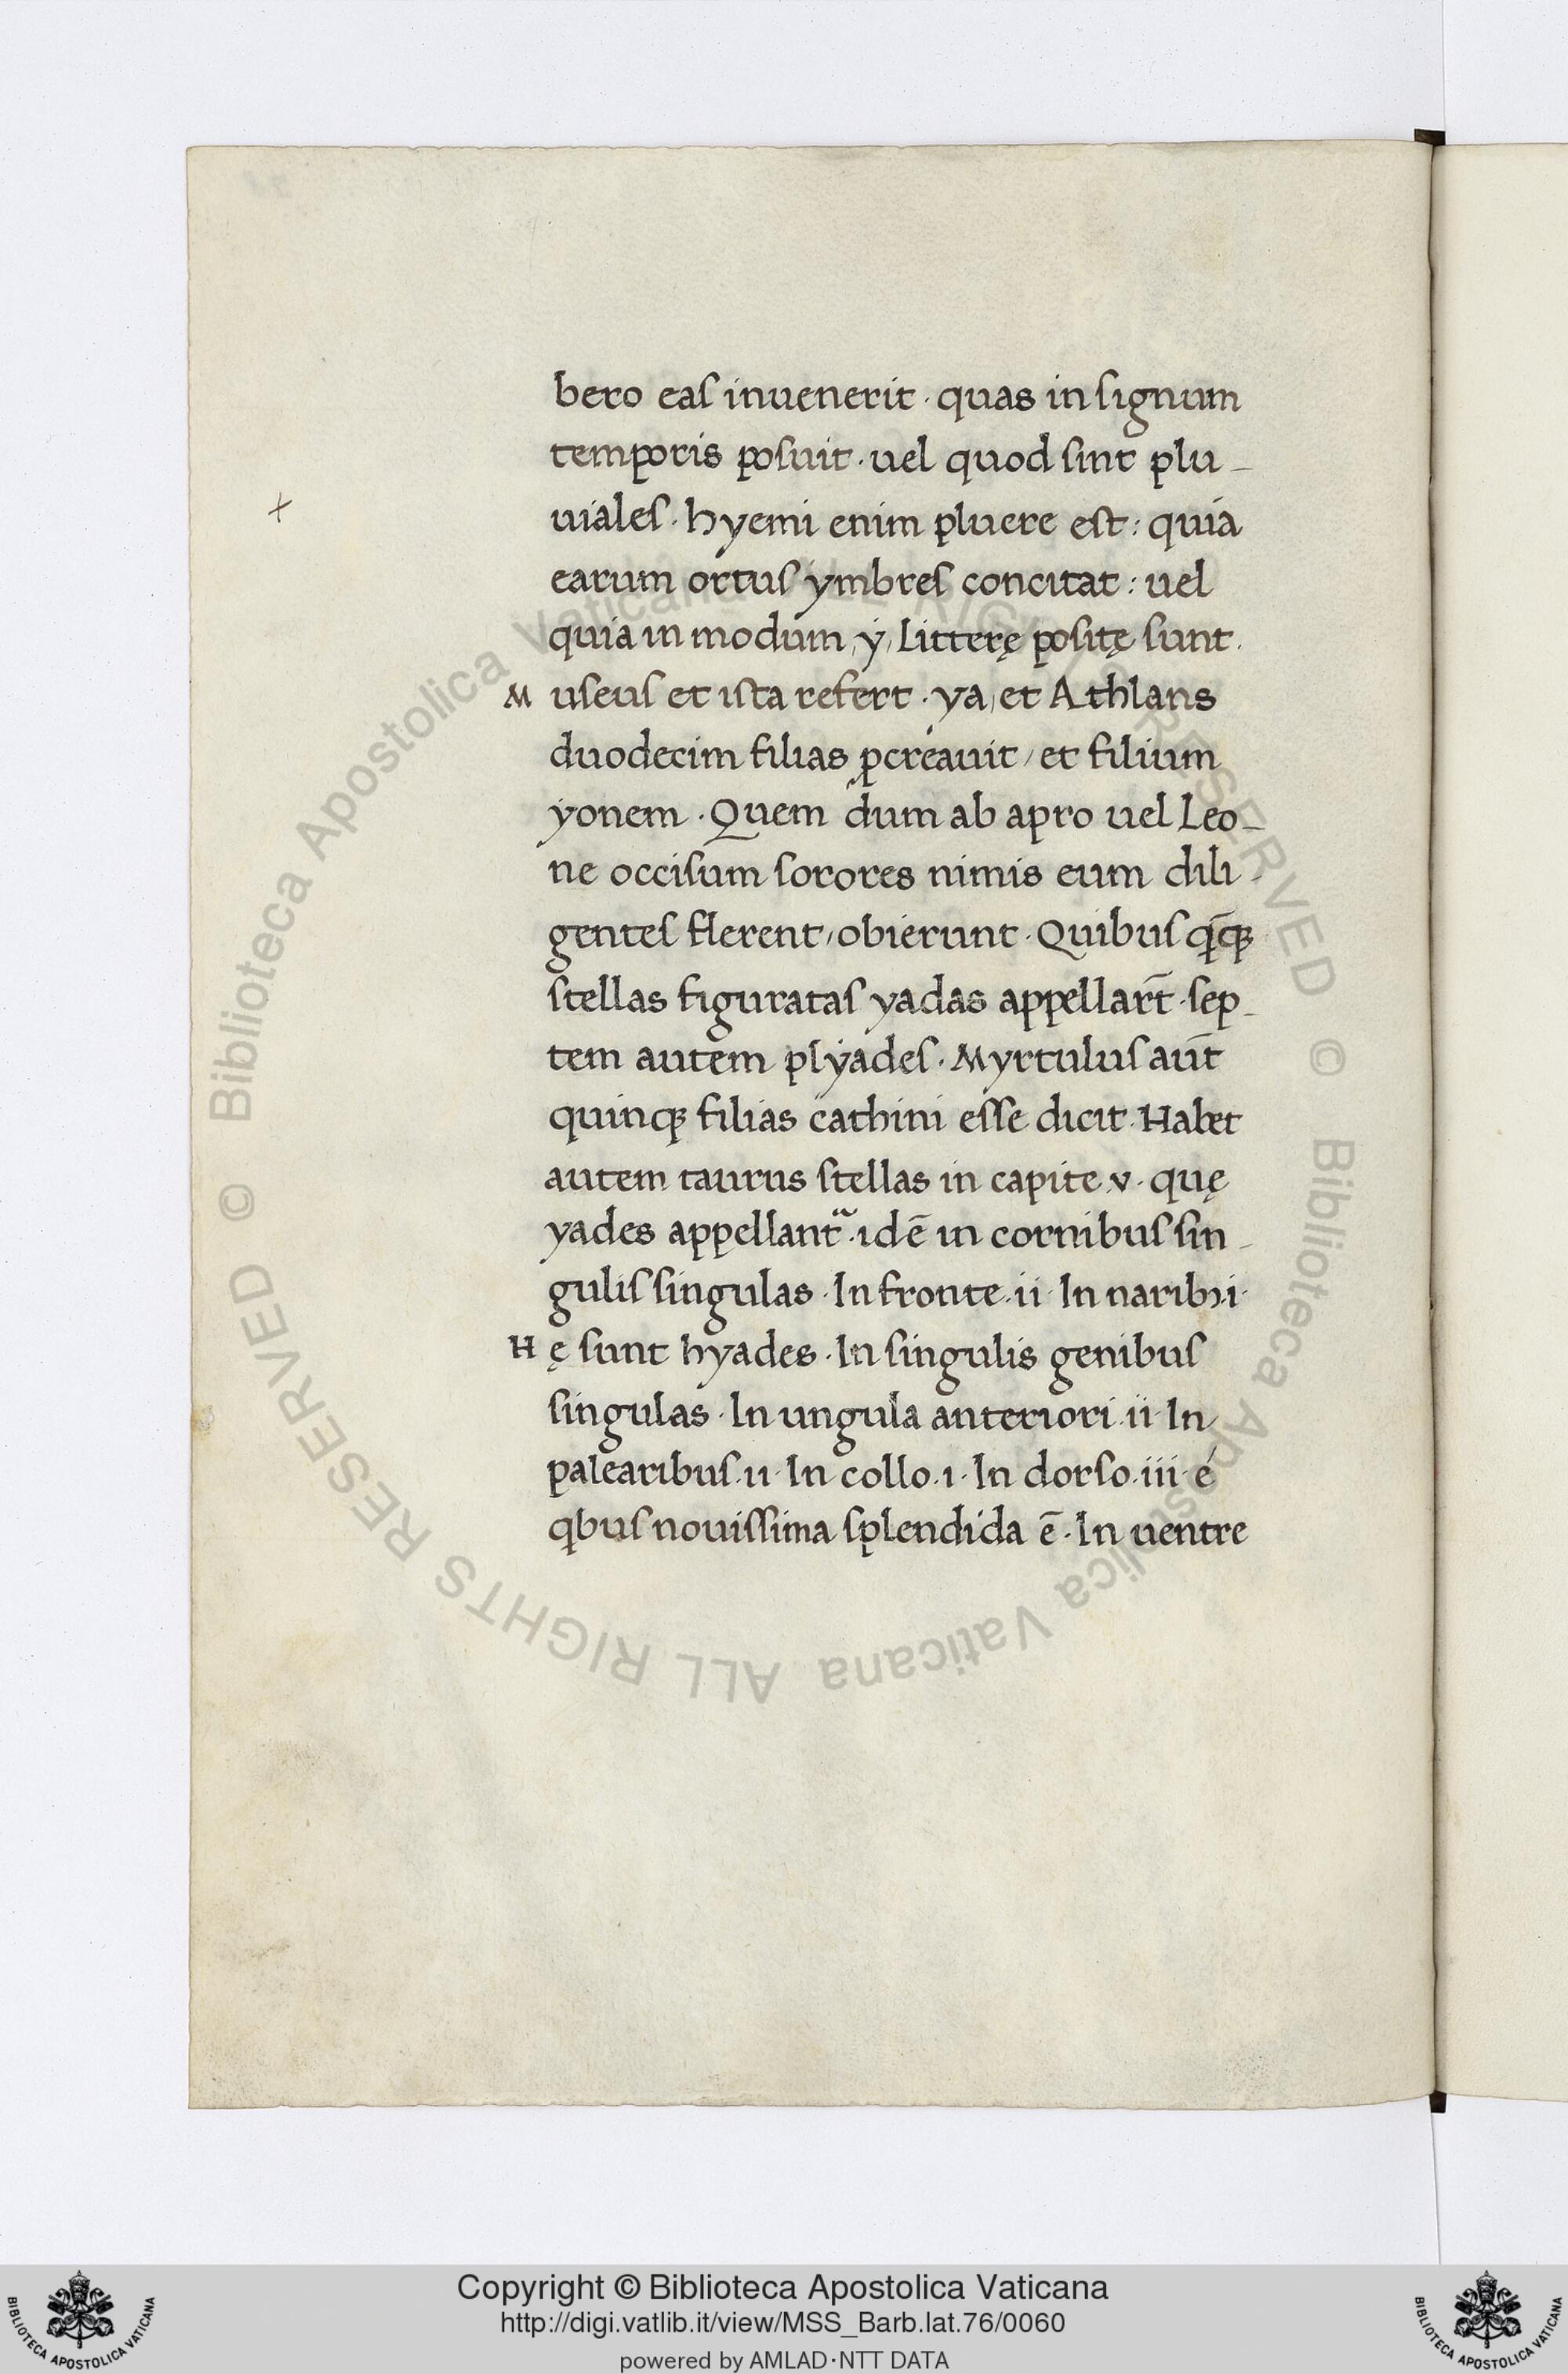 bero eaſ inuenerit · quas in ſignum
temporis poſuit · uel quod ſint plu-
uialeſ · hyemi enim pluere eſt : quia
earum ortuſ ymbreſ concitat : uel
quia in modum, ẏ, litterę poſitę ſunt.
M uſeuſ et iſta refert · ya, et Athlans
duodecim filias ꝓcreauit, et filium
ẏonem · Quem dum ab apro uel Leo-
ne occiſum ſorores nimis eum dili-
genteſ flerent, obierunt · Quibuſ qͥq̄ꝫ
ſtellas figurataſ yadas appellar̄t · ſep-
tem autem plẏadeſ · Myrtuluſ aūt
quinqꝫ filias cathini eſſe dicit · Habet
autem taurus ſtellas in capite .v. quę
yades appellant᷑ · idē in cornibuſ ſin-
guliſ ſingulas · In fronte .ii. In naribꝫ .i.
H ę ſunt hyades · In ſingulis genibuſ
ſingulas · In ungula anteriori .ii. In
palearibuſ .ii. In collo .i. In dorſo .iii. é
qͥbuſ nouiſſima ſplendida ē · In uentre
Copyright © Biblioteca Apostolica Vaticana
http://digi.vatlib.it/view/MSS_Barb.lat.76/0060
powered by AMLAD·NTT DATA
BIBLIOTECA APOSTOLICA VATICANA
BIBLIOTECA APOSTOLICA VATICANA
© Biblioteca Apostolica Vaticana ALL RIGHTS RESERVED © Biblioteca Apostolica Vaticana ALL RIGHTS RESERVED